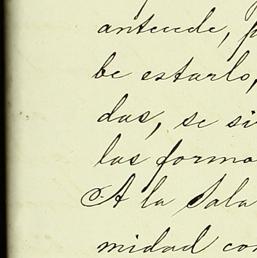 antecede, p
be estarlo,
das, se si
las forma
A la Sala
midad con